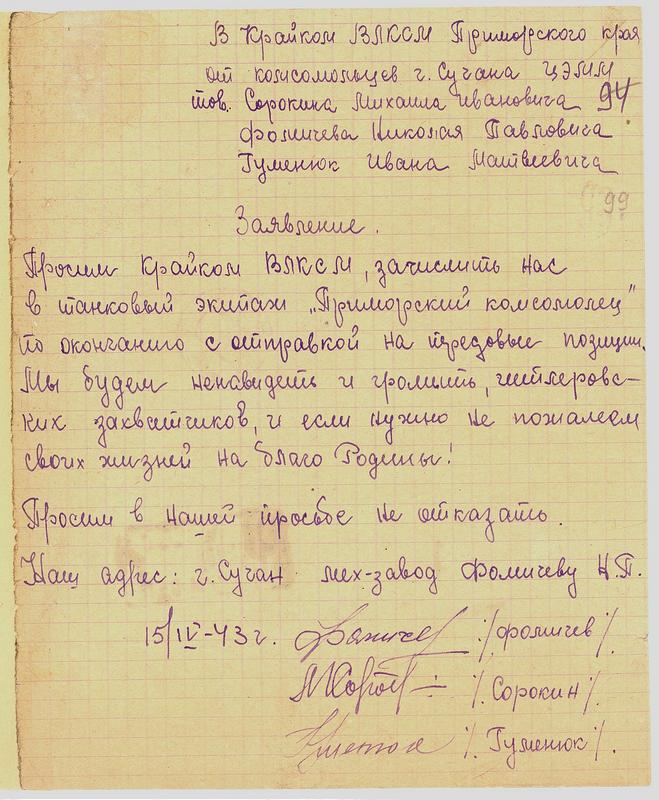 В Крайком ВЛКСМ Приморского края
от комсомольцев г. Сучана ЦЭММ
тов. Сорокина Михаила Ивановича 94
Фомичева Николая Павловича
Гуменюк Ивана Матвеевича
99
Заявление.
Просим Крайком ВЛКСМ, зачислить нас
в танковый экипаж „Приморский комсомолец”
по окончанию с отправкой на передовые позиции.
Мы будем ненавидеть и громить, гитлеровс-
ких захватчиков, и если нужно не пожалеем
своих жизней на благо Родины!
Просим в нашей просьбе не отказать.
Наш адрес: г. Сучан мех-завод Фомичеву Н.П.
15/IV-43 г. /Фомичев/
/Сорокин/
/Гуменюк/.